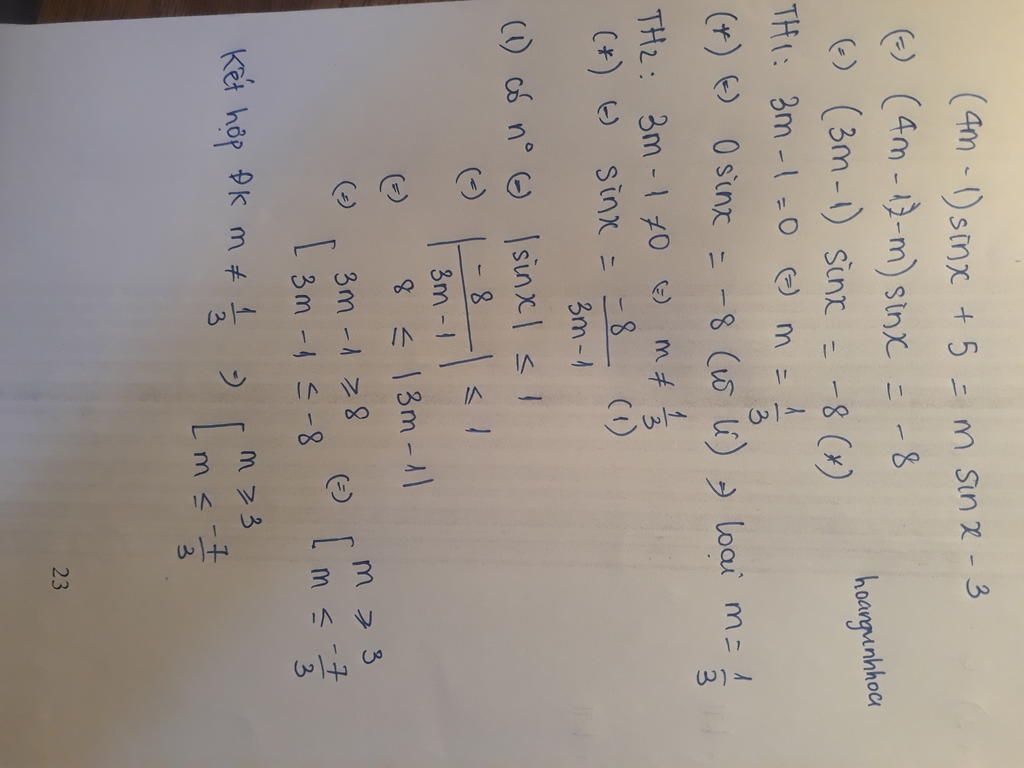 (4m - 1) sinx + 5 = m sinx - 3
(=) (4m - 1 - m) sinx = -8
(=) (3m - 1) sinx = -8 (*)
hoangunhhoa
TH1: 3m - 1 = 0 (=) m = 1/3
(*) (=) 0 sinx = -8 (vô lí) => loại m = 1/3
TH2: 3m - 1 ≠ 0 (=) m ≠ 1/3
(*) (=) sinx = -8/3m-1 (1)
(1) có n° (=) |sinx| ≤ 1
(=) |-8/3m-1| ≤ 1
(=) 8 ≤ |3m - 1|
(=) [ 3m - 1 ≥ 8 (=) [ m ≥ 3
3m - 1 ≤ -8 m ≤ -7/3
Kết hợp ĐK m ≠ 1/3 => [ m ≥ 3
m ≤ -7/3
23